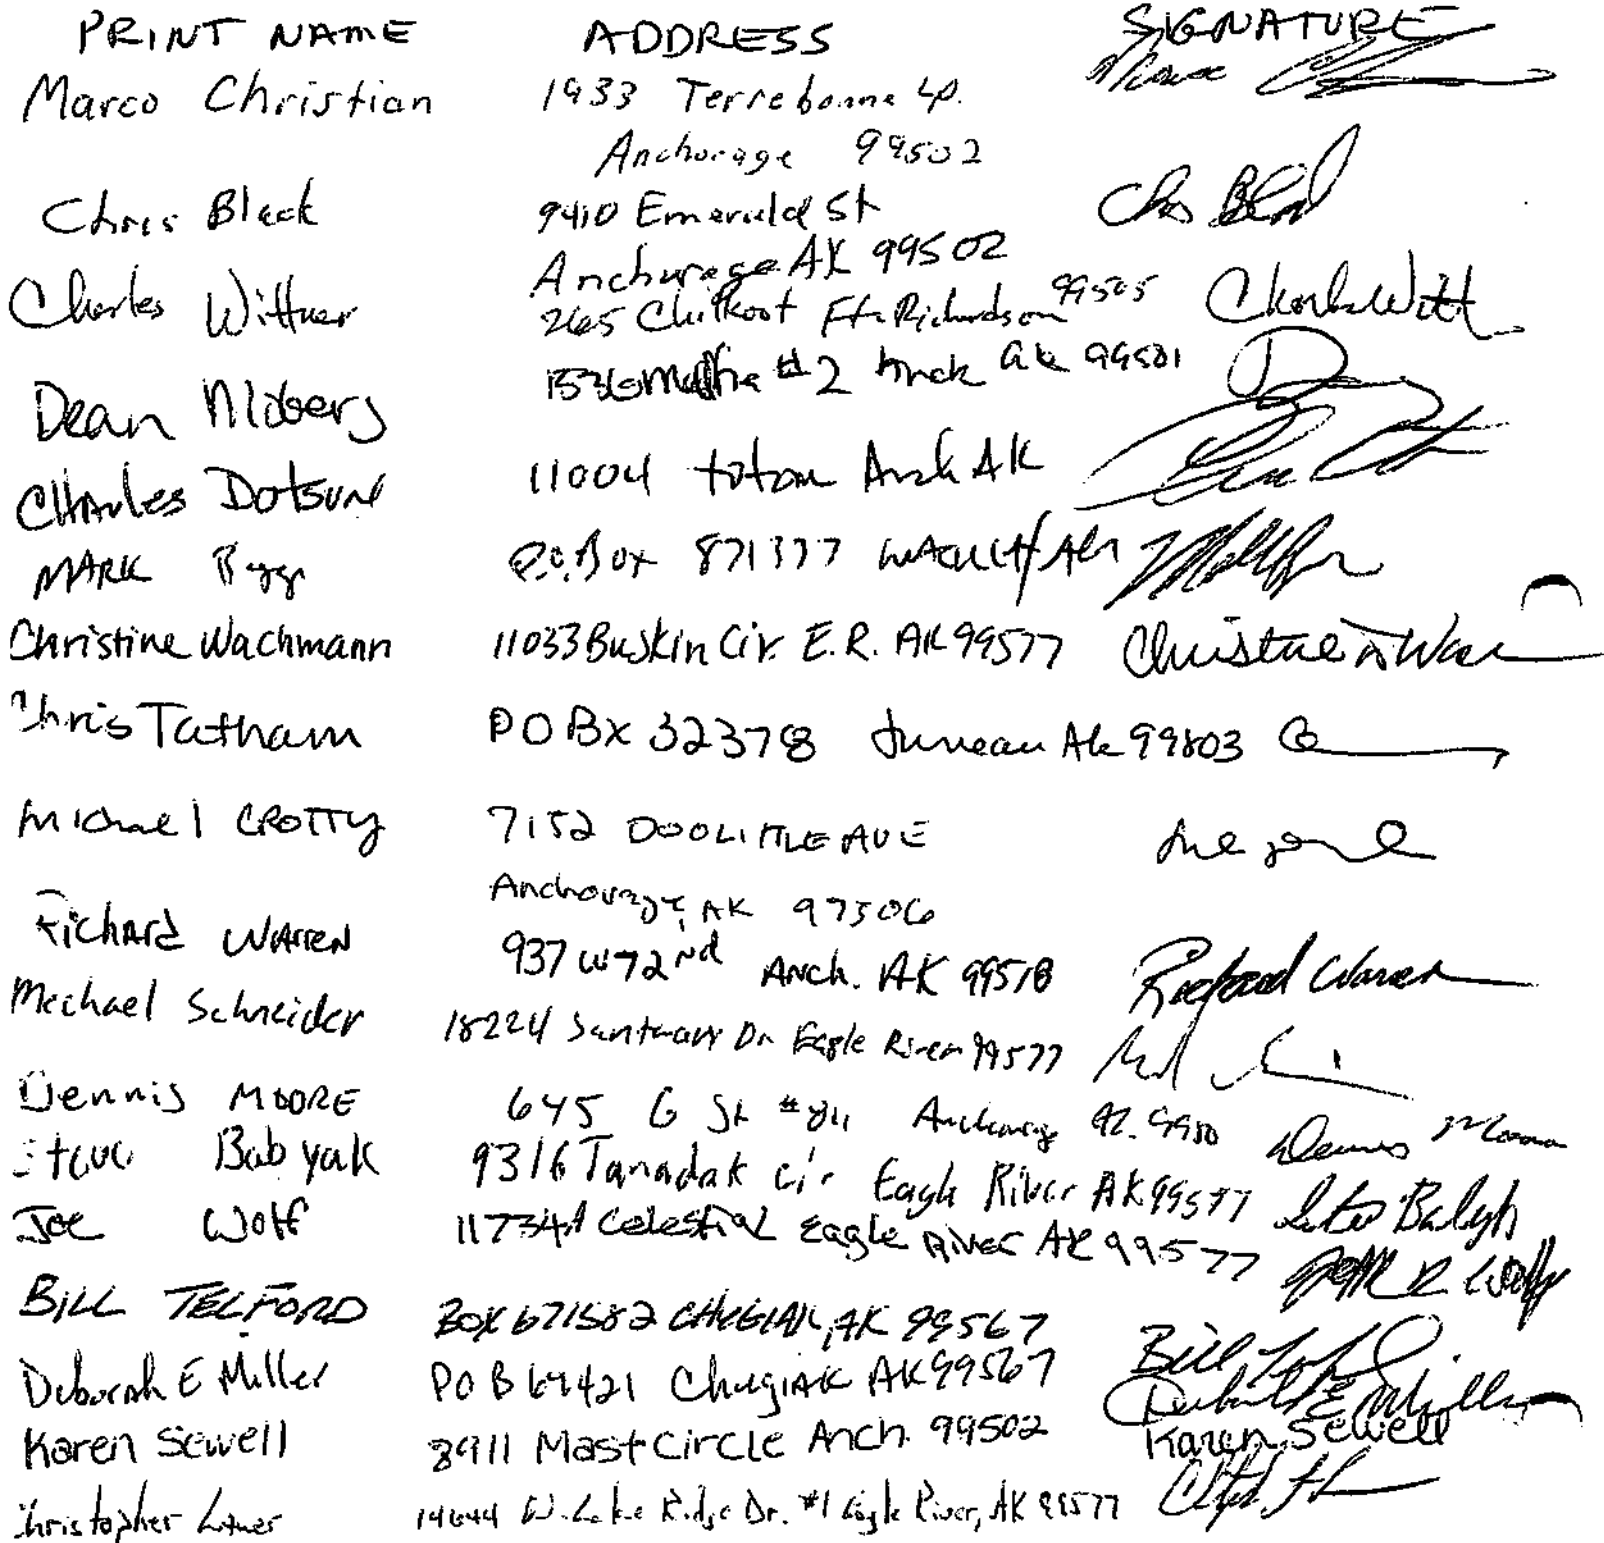 PRINT NAME ADDRESS SIGNATURE
Marco Christian 1933 Terrebonne Lp.
Anchorage 99502
Chris Black 9410 Emerald St Chris
Anchorage AK 99502
Charles Wittner 265 Chilkoot Ft. Richardson 99505 Charles Witt
Dean #2 Anch ak 99501
CHArles Dotson 11004 Anch AK
MARK P.O. Box 871377
Christine Wachmann 11033 Buskin Cir. E.R. AK 99577 Christine
Chris Tatham PO Bx 32378 Juneau Ak 99803
Michael CROTTY 7152 DOOLITTLE AVE
Anchorage, AK 99506
Richard WARREN 937 W 72nd Anch. AK 99518 Richard Warren
Michael Schneider 18224 Dr Eagle River 99577
Dennis MOORE 645 G St # Anchorage Dennis Moore
Steve Babyak 9316 Tanadak cir Eagle River AK 99577
Joe Wolf 11734A Celestial Eagle River AK 99577 R Wolf
BILL TELFORD BOX 671582 CHUGIAK, AK 99567 Bill
Deborah E Miller PO B 69421 Chugiak AK 99567 Deborah E Miller
Karen Sewell 8911 Mast Circle Anch. 99502 Karen Sewell
Christopher W. Lake Ridge Dr. #1 Eagle River, AK 99577